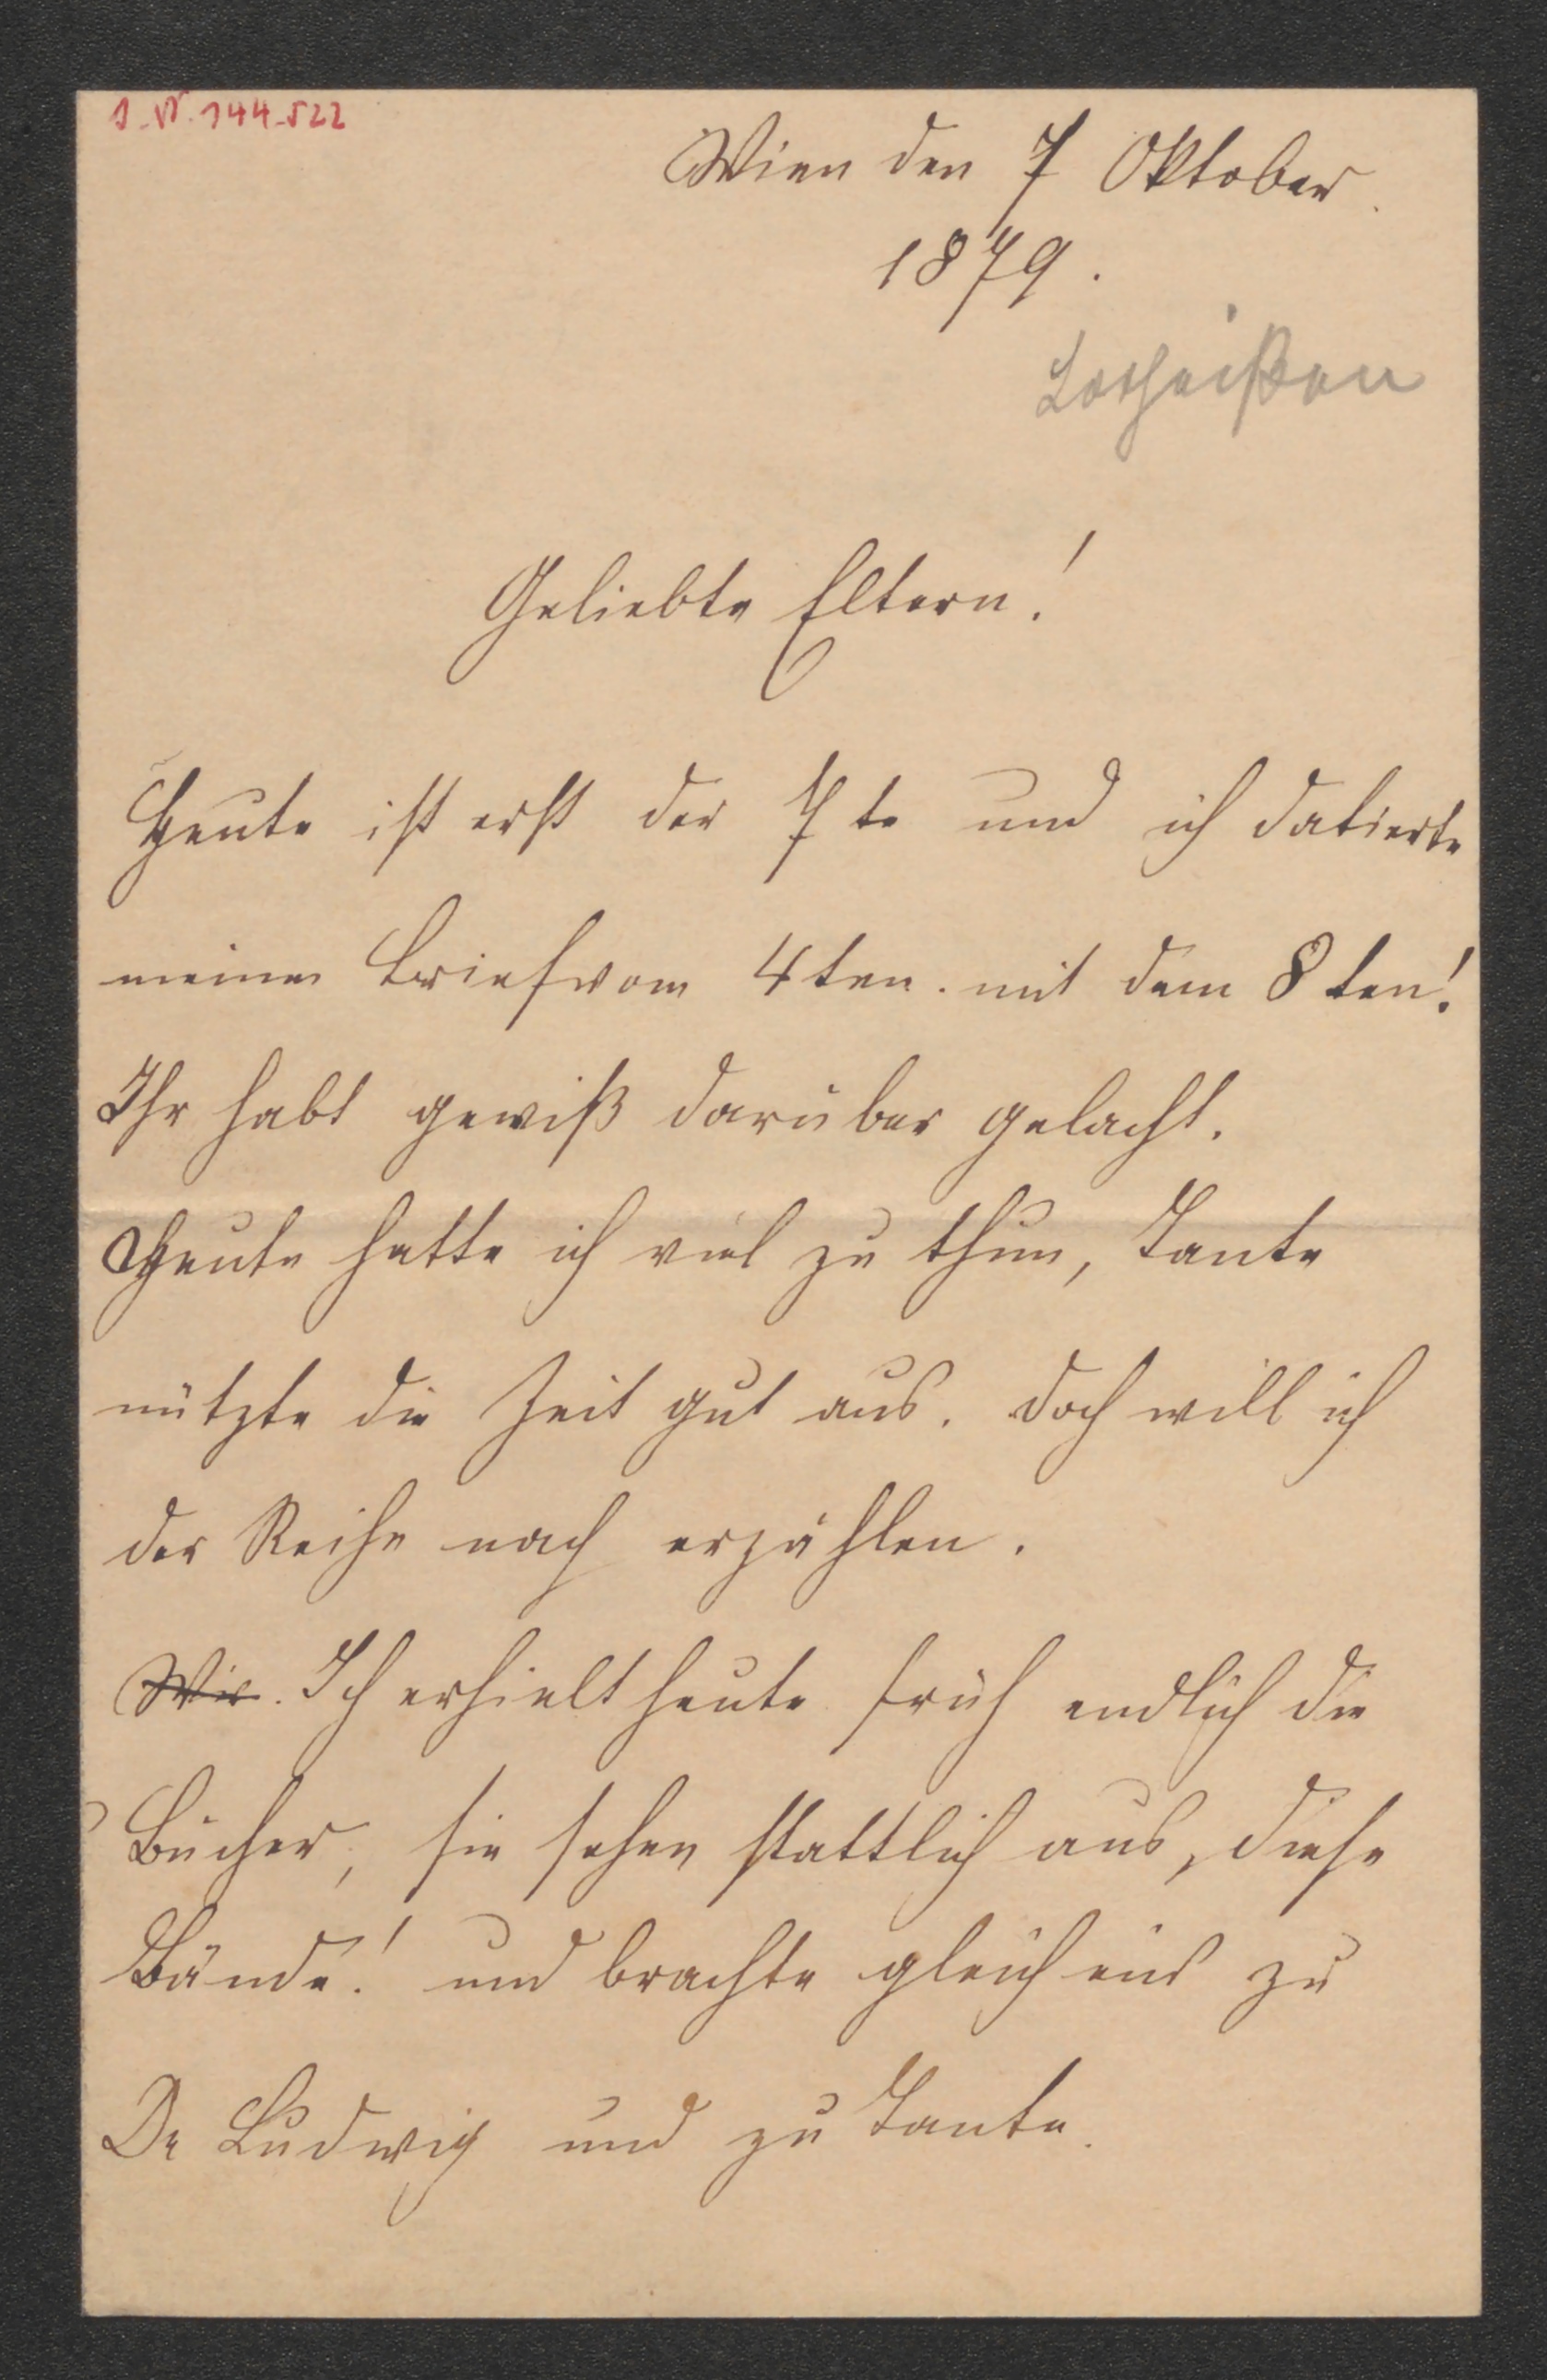 I.N. 144.522
Wien den 7 Oktober.
1879.
Lotheißen
Geliebte Eltern!
Heute ist erst der 7te und ich datierte
meinen Brief vom 4ten. mit dem 8ten!
Ihr habt gewiß darüber gelacht.
Heute hatte ich viel zu thun, Tante
nützte die Zeit gut aus. Doch will ich
der Reihe nach erzählen.
Wir. Ich erhielt heute früh endlich die
Bücher, sie sehen stattlich aus, diese
Bände! und brachte gleich eins zu
Dr Ludwig und zu Tante.